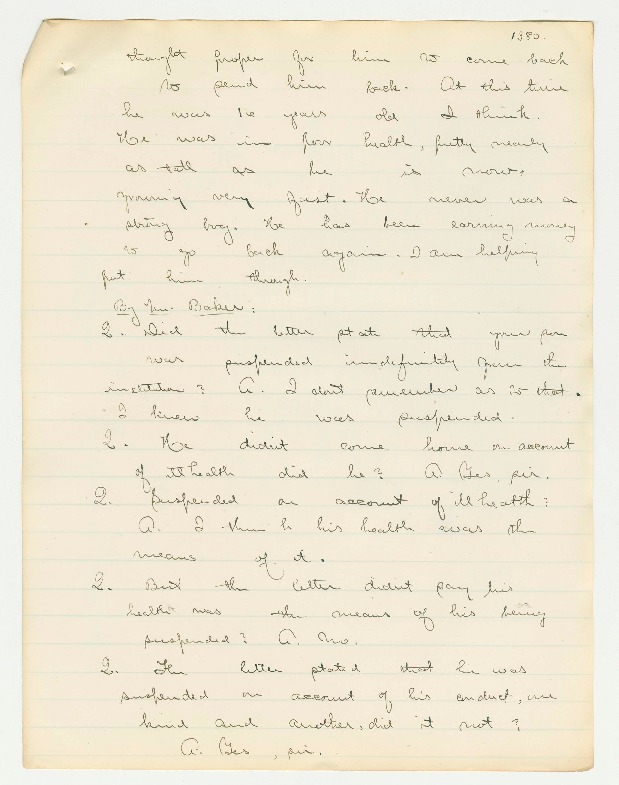 1380.
thought proper for him to come back
to send him back. At this time
he was 16 years old I think.
He was in poor health, pretty nearly
as tall as he is now,
growing very fast. He never was a
strong boy. He has been earning money
to go back again. I am helping
put him through.
By Mr. Baker:
Q. Did the letter state that your son
was suspended indefinitely from the
institution? A. I don't remember as to that.
I knew he was suspended.
Q. He didn't come home on account
of ill health did he? A. Yes, sir.
Q. Suspended on account of ill health?
A. I think his health was the
means of it.
Q. But the letter didn't say his
health was the means of his being
suspended? A. No.
Q. The letter stated that he was
suspended on account of his conduct, one
kind and another, did it not?
A. Yes, sir.